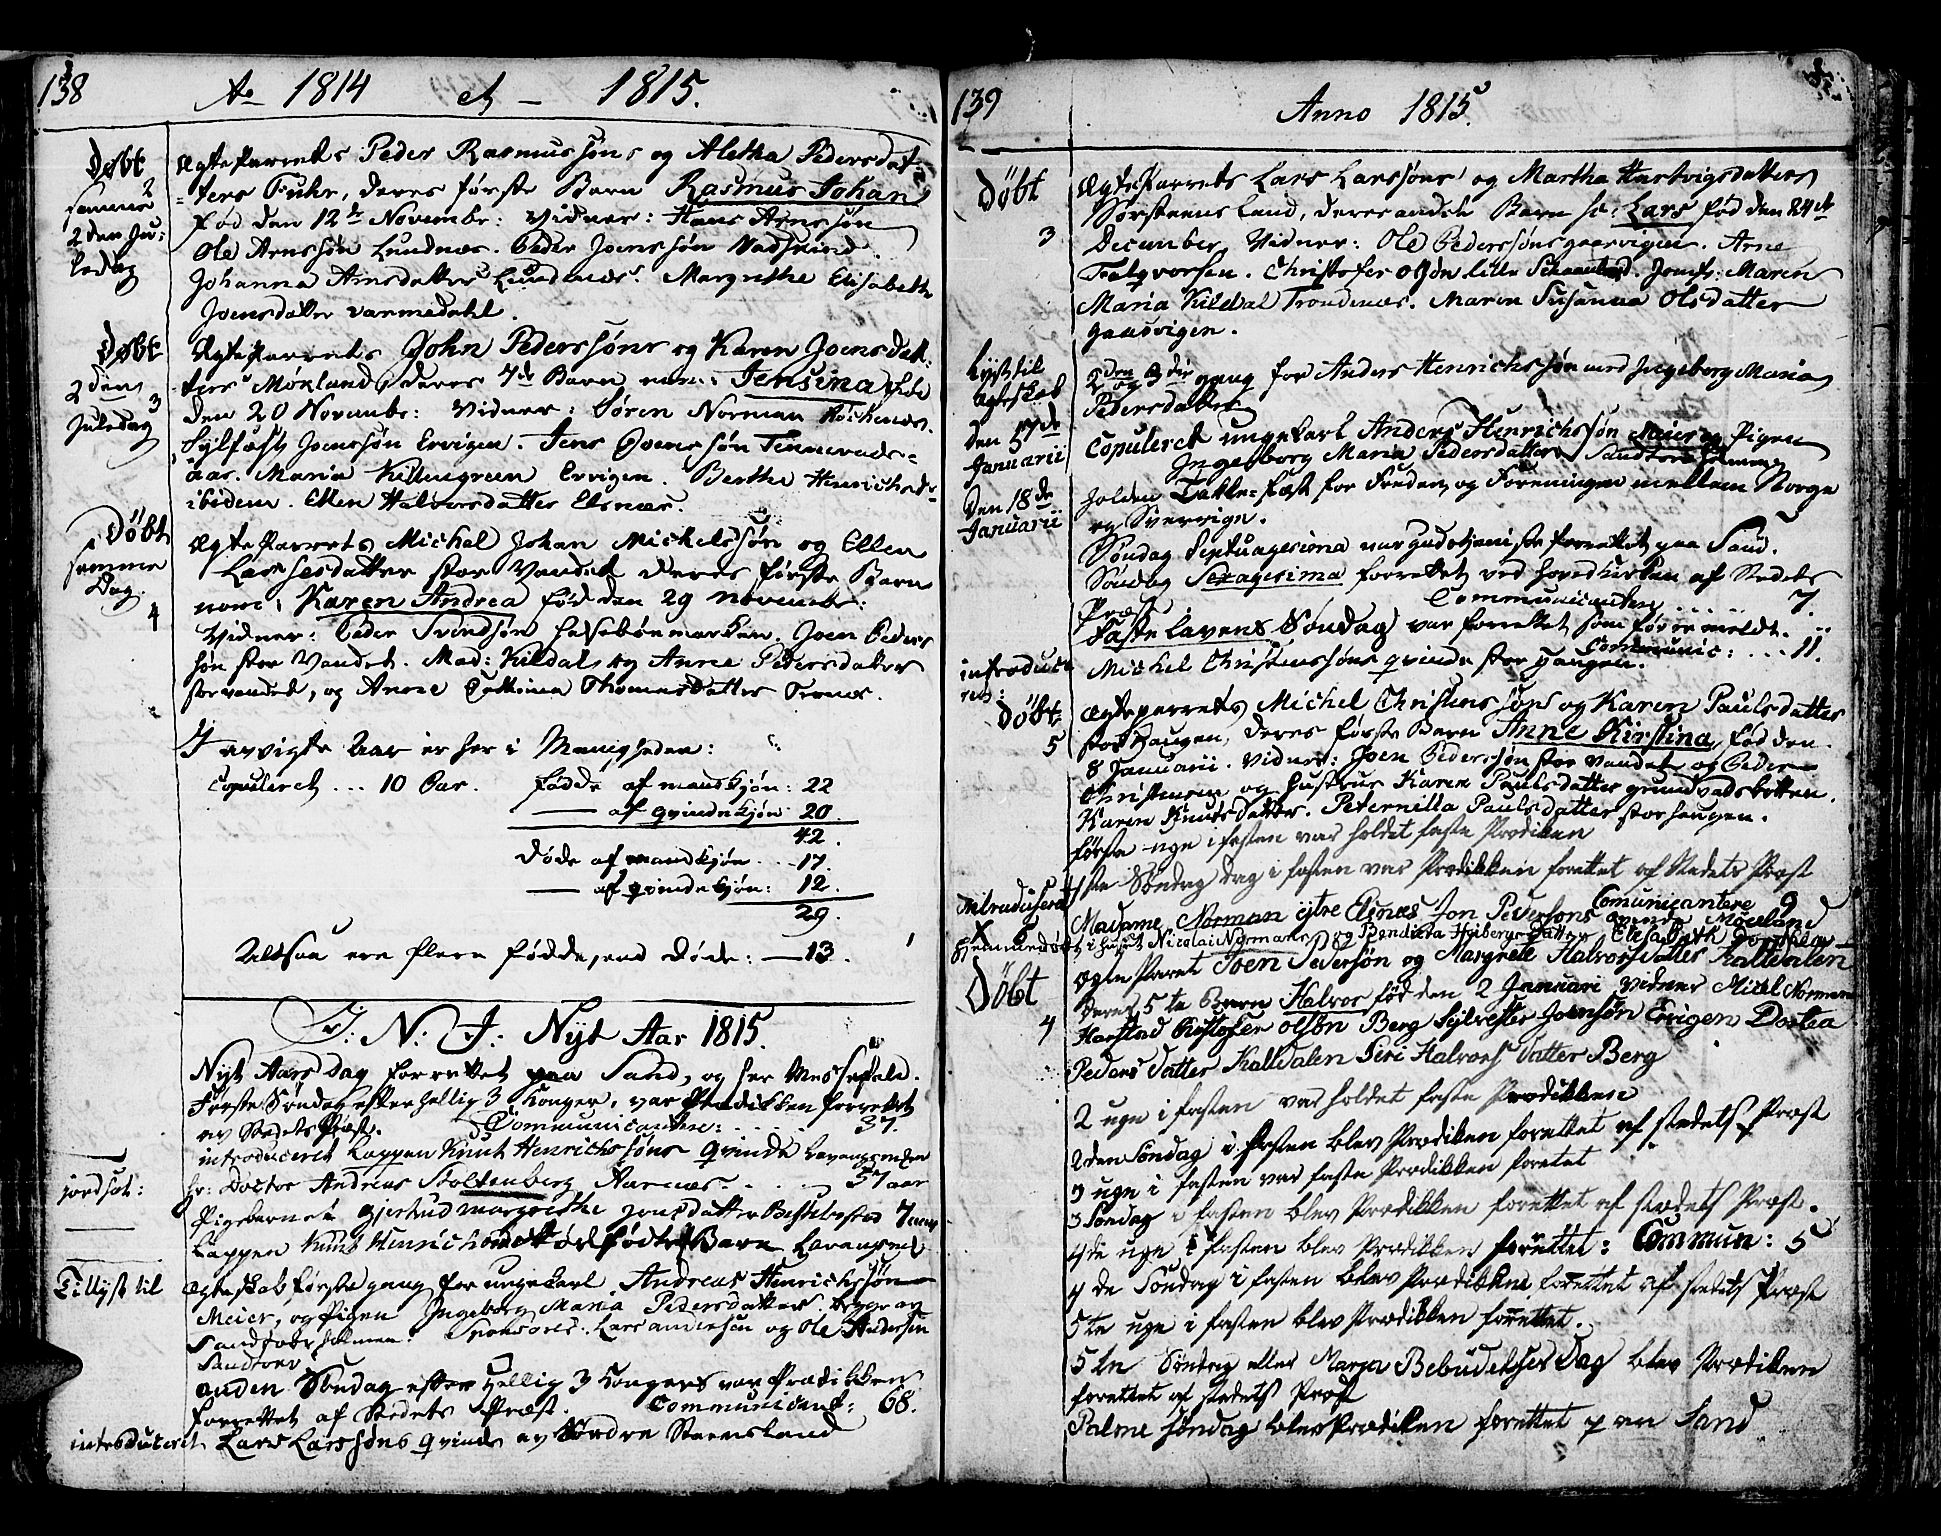 138
Ao 1814 et - 1815.
Døbt
samme
2den Ju-
ledag
2
ÆgteParrets Peder Rasmussøns og Aletha Pedersdat-
ters Fuhr, deres første Barn Rasmus Johan
fød den 12te Novembr: Vidner: Hans Arnssøn
Ole Arnssøn Lundnæs. Peder Joenssøn
Johanna Arnsdatter Lundnæs. Margrethe Elisabeth
Joensdatter Varmedahl.
Døbt
2den
Juledag
3
ÆgteParrets John Pederssøns og Karen Joensdat-
ters Møkland, deres 7de Barn nom: Jensina fød
den 20 Novembr: Vidner: Søren Norman
Sylfæst Joenssøn Ervigen. Jens Joenssøn Tennevads-
aas. Maria Killengreen Ervigen. Berthe Henrichsd:
ibidem. Ellen Halvorsdatter Elsnæs.
Døbt
samme
Dag.
4
ÆgteParrets Michal Johan Michelssøn og Ellen
Larsesdatter stor Vandet deres første Barn
nom: Karen Andrea fød den 29 Novembr:
Vidner: Peder Svendsøn . Joen Peders
søn stor Vandet. Mad: Kildal og Anne Pedersdatter
storvandet, og Anne Cathrina Thomesdatter Tronæs.
I avvigte Aar er her i Menigheden:
Copuleret ... 10 Par. Fødde af mandkjøn: 22
— af qvindekjøn 20.
42.
Døde af mandkjøn ... 17.
— af qvindekjøn: 12.
29.
Altsaa ere flere fødde, end døde: — 13.
I: N: J: Nyt Aar 1815.
Nyt Aarsdag forrettet paa Sand, og her Messefald.
Første Søndag efter hellig 3 Konger, var Prædikken forrettet
av Stedets Præst. Communicantere: 37.
introduceret Lappen Knut Henrichssøns Qvinde
jordfæt:
hr: Doctor Andreas Stoltenberg Aarnæs. 57 aar
Pigebarnet Gjertrud Margrethe Jensdatter 7 aar
Lappen Knut Henrichs dødfødte Barn
Tillyst til
Ægteskab første gang for ungekarl Andreas Henrichssøn
Meier, og Pigen Ingeborg Maria Pedersdatter. begge av
Sandtorv Sponsores: Lars Anderssøn og Ole Anderssøn
Sandtorv
anden Søndag efter Hellig 3 Konger var Prædikken
forrettet af Stedets Præst. Communicant: 68.
introduceret Lars Larssøns Qvinde av Søndre Steensland
139
Anno 1815.
Døbt
3
ÆgteParrets Lars Larssøns og Martha Hartvigsdatters
Sørsteensland, deres andet Barn Lars fød den 24de
December, Vidner: Ole Pederssøn gaasvigen. Arne
. Christofer Olssøn lille . Jomfr: Maren
Maria Kildal Trondenæs. Maren Susanna Olsdatter
gaasvigen.
Lyst til
Ægteskab
2den og 3die gang for Anders Henrichssøn med Ingeborg Maria
Pedersdatter
Den 17de
Januarii
Copuleret ungekarl Anders Henrichssøn Meier og Pigen
Ingeborg Maria Pedersdatter
Den 18de
Januarii
holden Takke-fest for Freden, og Foreningen mellem Norge
og Sverrige.
Søndag Septuagesima var gudstjeniste forrettet paa Sand.
Søndag Sexagesima forrettet ved hovedkirken af Stedets
Præst Communicantere ..... 7.
Fastelavens Søndag var forrettet som før ermeldt.
Communic: .... 11.
introduce
ret:
Michel Christenssøns qvinde stor haugen.
Døbt
5
ÆgteParrets Michel Christenssøns og Karen Paulsdatter
stor Haugen, deres første Barn Anne Kirstina, fød den
8 Januarii. Vidner: Joen Pederssøn stor Vandet og Peder
Christensen og hustrue Karen Paulsdatter grundvadsbotten.
Karen Knutsdatter. Peternilla Paulsdatter storhaugen.
Første uge i fasten var holdet faste Prædiken
1ste Søndag dag i fasten var Prædikken forettet af Stedets Præst
Comunicantere 9
introduseret
Madame Norman ytre Elsnæs Jon Pedersøns qvinde Møcland
Hiemmedøbt i huset Nicolai Normans og Bendicta Heibergs Datter Elisabeth Dorothea
Døbt
4
ÆgteParet Iven Pedersøn og Margrete Halvorsdatter Kaltdalen
deres 5te Barn Halvor fød den 2 Januari Vidner Mikel Norman
Harstad Kristofer Olsøn Berg Sylvester Joensøn Ervigen Dortea
Peders Datter Kaltdalen Siri Halvors Datter Berg
2 uge i fasten var holdet faste Prædikken
2den Søndag i fasten blev Prædiken forettet af stedets Præst
3 uge i fasten var faste Prædikken forettet
3 Søndag i fasten blev Prædikken forettet af stedets Præst.
4de uge i fasten blev Prædikken forettet: Commun: 5
4de Søndag i fasten blev Prædikkene forettet af stedets Præst
5te uge i fasten blev Prædikken forettet.
5te Søndag eller Maria Bebudelses Dag blev Prædiken
forettet af stedets Præst
Palme søndag blev Prædiken forettet paa Sand